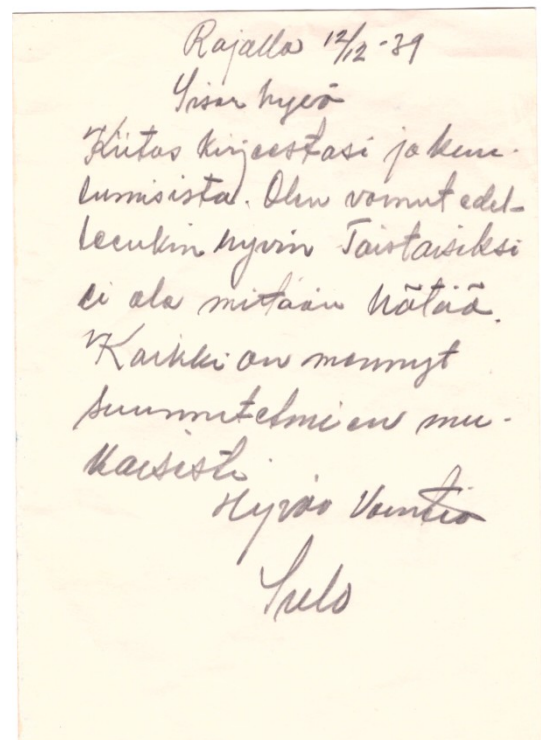 Rajalla 12/12-39
Sisar hyvä
Kiitos kirjeestasi ja kuu-
lumisista. Olen voinut edel-
leenkin hyvin Toistaiseksi
ei ole mitään hätää.
Kaikki on mennyt
suunnitelmien mu-
kaisesti.
Hyvää Vointia
Sulo